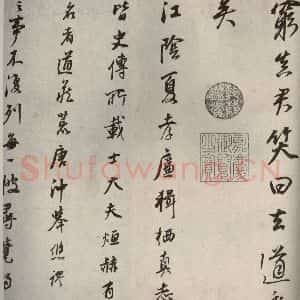 君笑曰去道
矣
江陰夏孝廉緝栖真志
皆史傳所載士大夫烜赫有
名者道藏
唐沖舉悠謬
之事不復列每一披尋覺
Shufawang.CN